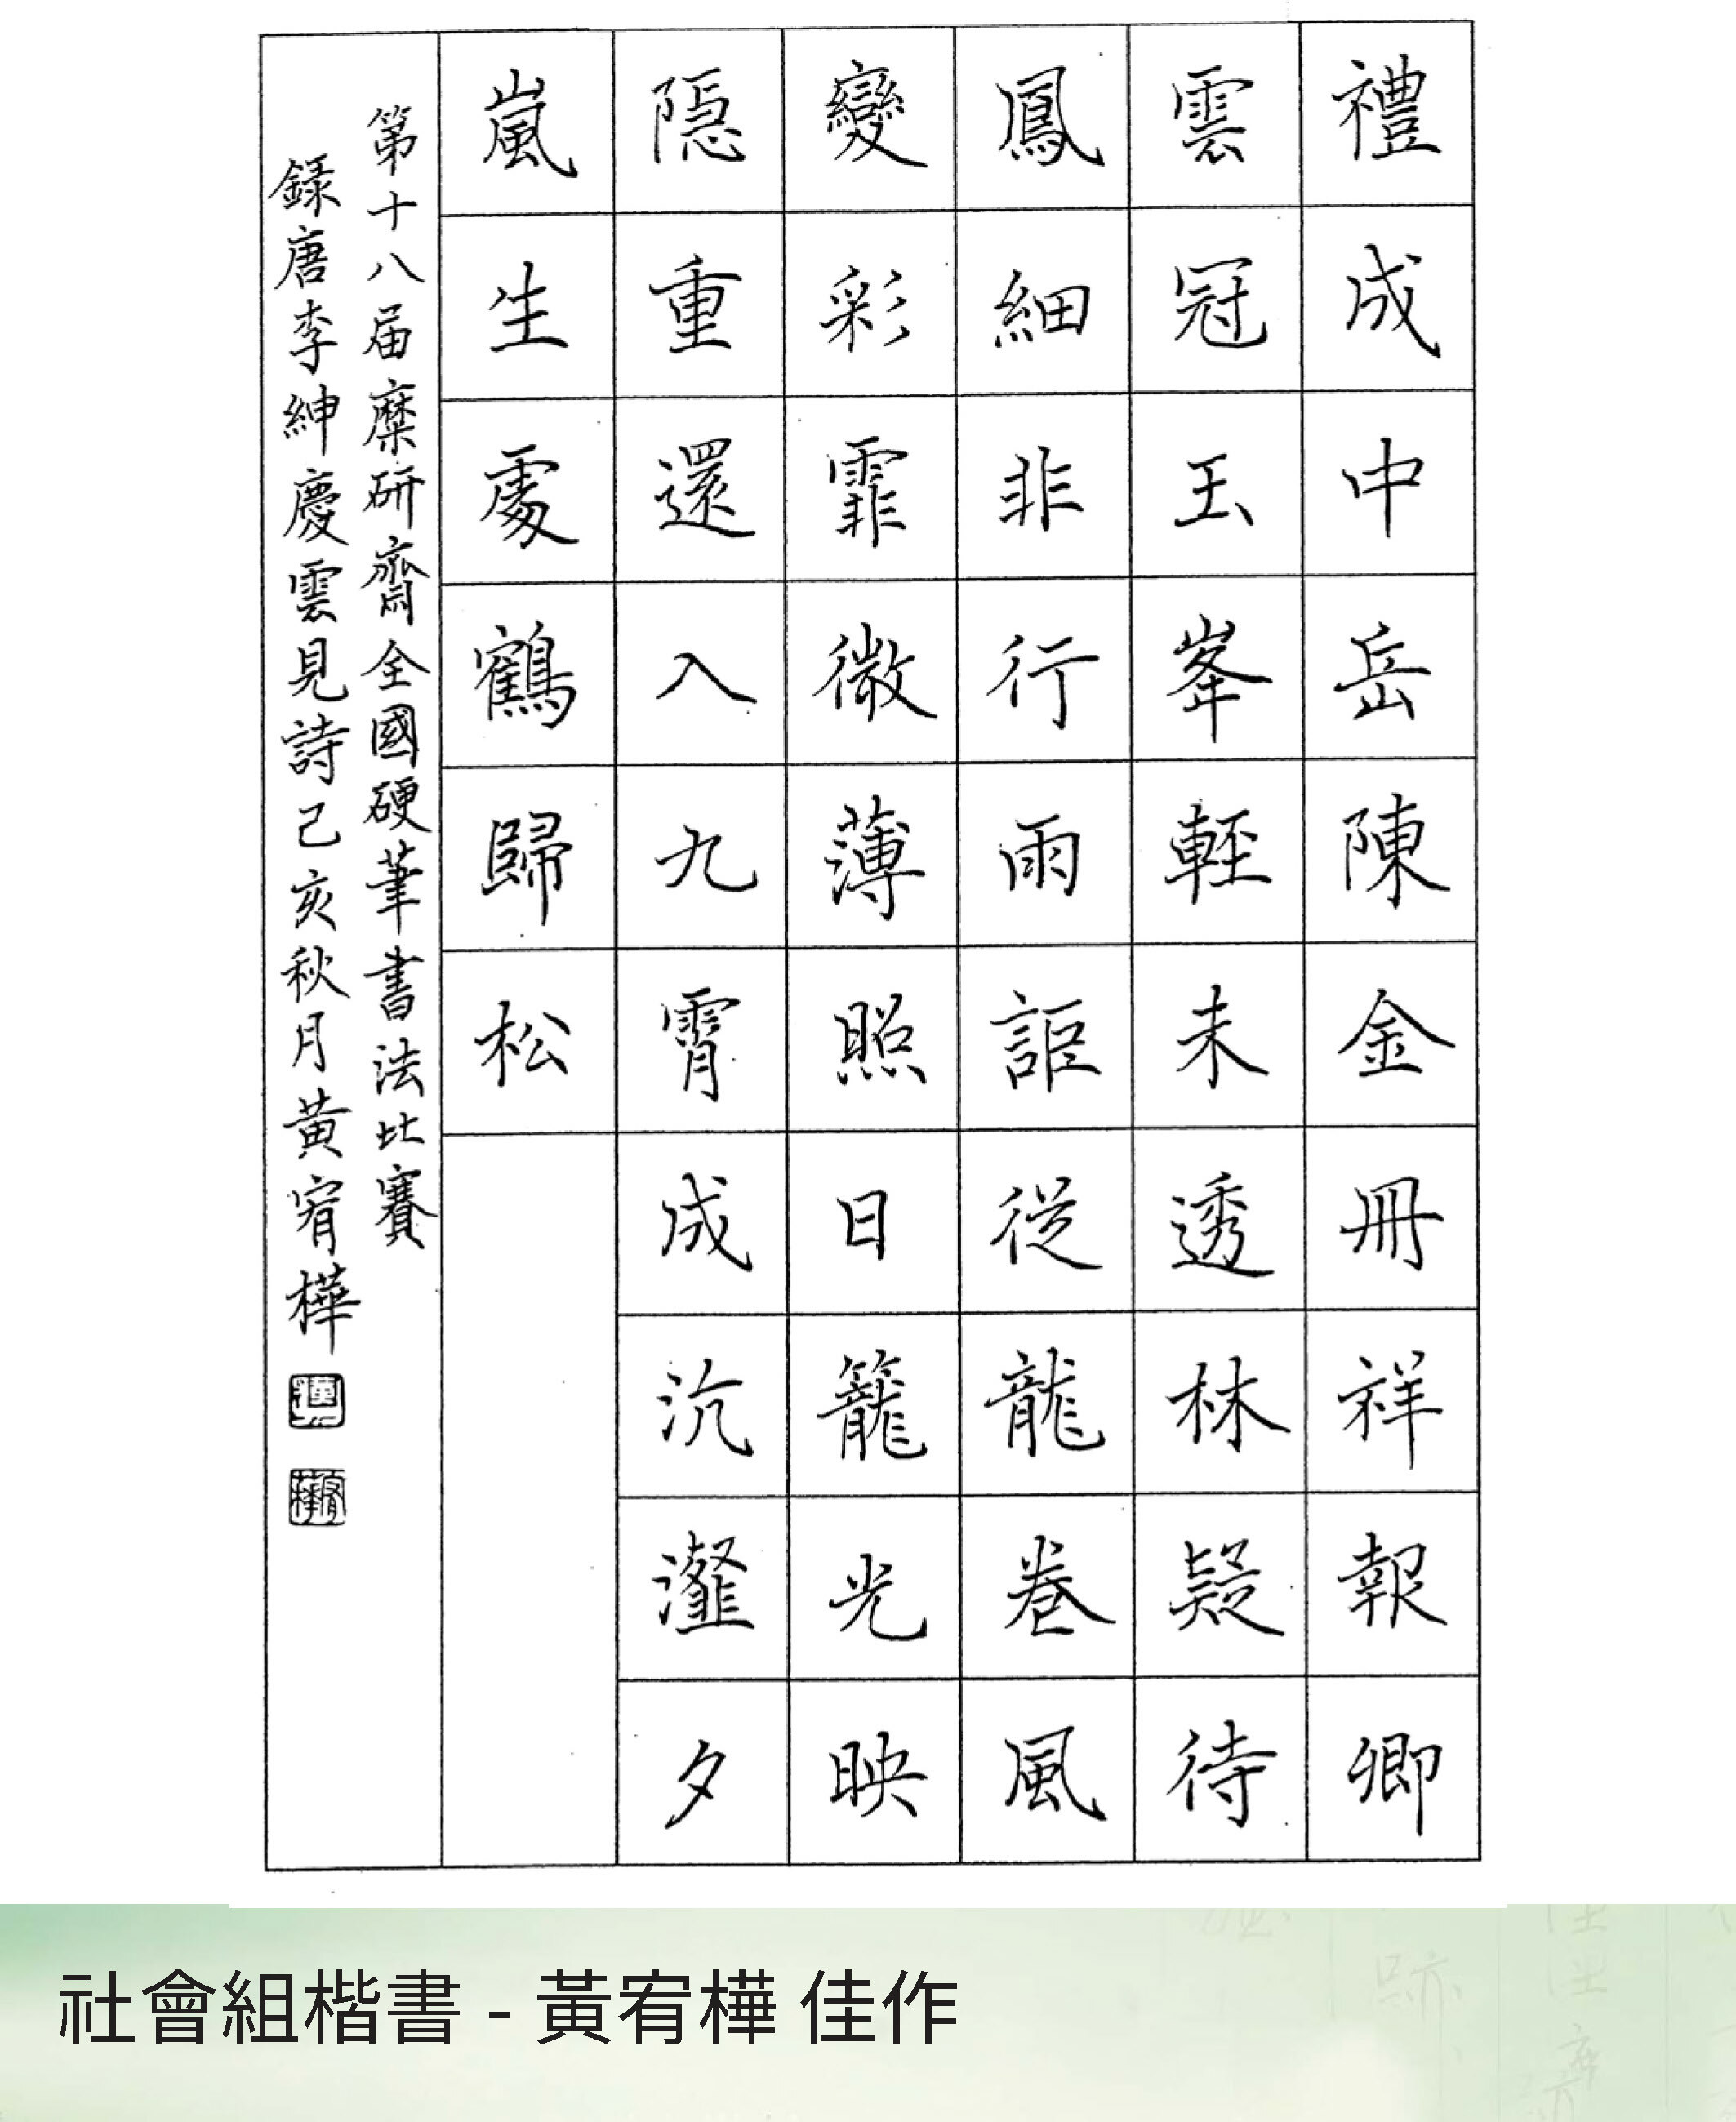 禮成中岳陳金冊祥報卿
雲冠玉峯輕未透林疑待
鳳細非行雨詎從龍卷風
變彩霏微薄照日籠光映
隱重還入九霄成沆瀣夕
嵐生處鶴歸松
第十八届糜研齋全國硬筆書法比賽
録唐李紳慶雲見詩己亥秋月黃宥樺
社會組楷書 - 黃宥樺 佳作